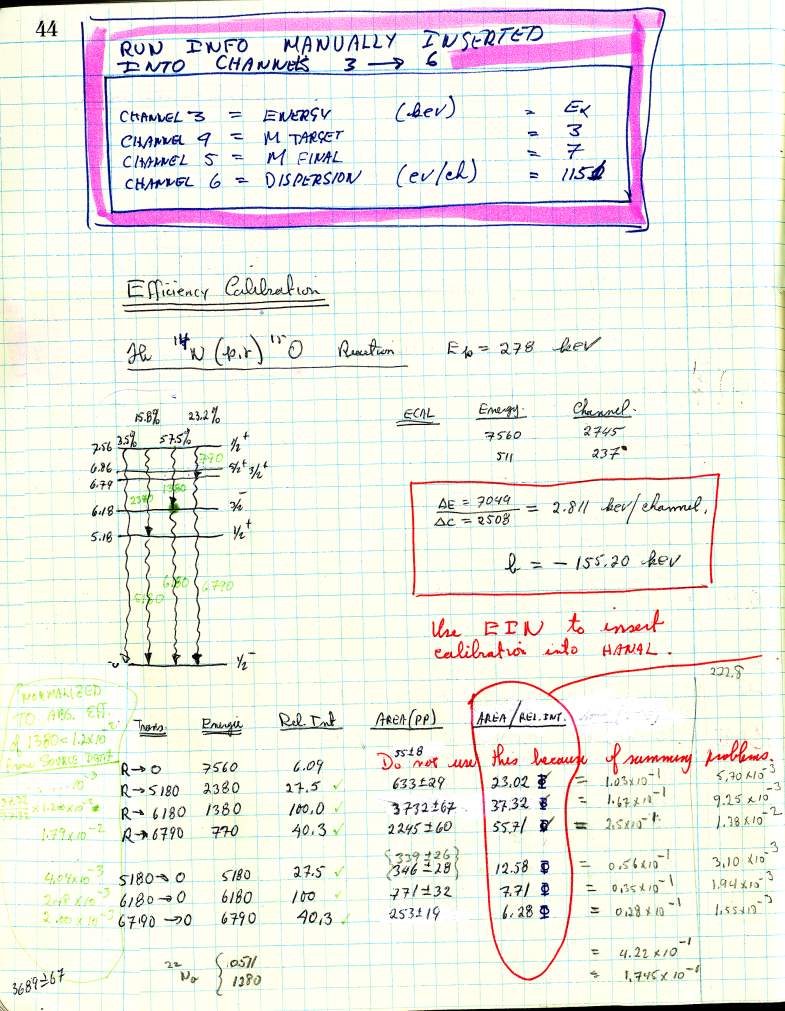 44
RUN INFO MANUALLY INSERTED
INTO CHANNELS 3 → 6
CHANNEL 3 = ENERGY (keV) = Ex
CHANNEL 4 = M TARGET = 3
CHANNEL 5 = M FINAL = 7
CHANNEL 6 = DISPERSION (ev/ch) = 115
Efficiency Calibration
The ¹⁴N (p,γ) ¹⁵O Reaction Ep = 278 keV
15.8% 23.2%
3.5% 57.5%
7.56 ½⁺
6.86 5/2⁺ 3/2⁺
6.79
6.18 3/2⁻
5.18 ½⁺
0 ½⁻
770
1380
2380
5180
6180
6790
ECAL Energy Channel
7560 2745
511 237
ΔE = 7049
ΔC = 2508
= 2.811 keV/channel,
b = -155.20 keV
Use EIN to insert
calibration into HANAL.
222.8
NORMALIZED
TO ABS. EFF.
of 1380 = 1.2x10⁻²
from SOURCE
Trans. Energie Rel Int AREA (PP) AREA/REL.INT.
55±8
Do not use this because of summing problems.
R→0 7560 6.09
R→5180 2380 27.5 ✓ 633±29 23.02 = 1.03x10⁻¹ 5.70x10⁻³
R→6180 1380 100.0 ✓ 3732±67 37.32 = 1.67x10⁻¹ 9.25x10⁻³
1.79x10⁻² R→6790 770 40.3 ✓ 2245±60 55.71 = 2.5x10⁻¹ 1.38x10⁻²
{339±26}
4.04x10⁻³ 5180→0 5180 27.5 ✓ {346±28} 12.58 = 0.56x10⁻¹ 3.10x10⁻³
2.48x10⁻³ 6180→0 6180 100 ✓ 771±32 7.71 = 0.35x10⁻¹ 1.94x10⁻³
2.00x10⁻³ 6790→0 6790 40.3 ✓ 253±19 6.28 = 0.28x10⁻¹ 1.55x10⁻³
= 4.22x10⁻¹
= 1.745x10⁻¹
²²Na { .0511
1280
3689±67